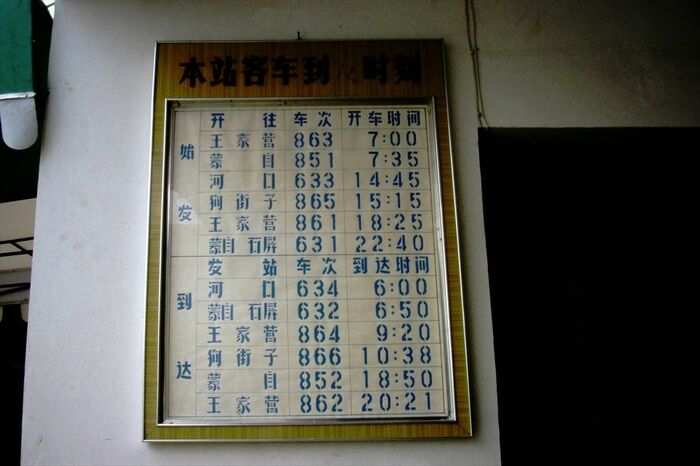 本站客车到 时刻
始发
开往 车次 开车时间
王家营 863 7:00
蒙自 851 7:35
河口 633 14:45
狗街子 865 15:15
王家营 861 18:25
蒙自 石屏 631 22:40
到达
发站 车次 到达时间
河口 634 6:00
蒙自 石屏 632 6:50
王家营 864 9:20
狗街子 866 10:38
蒙自 852 18:50
王家营 862 20:21